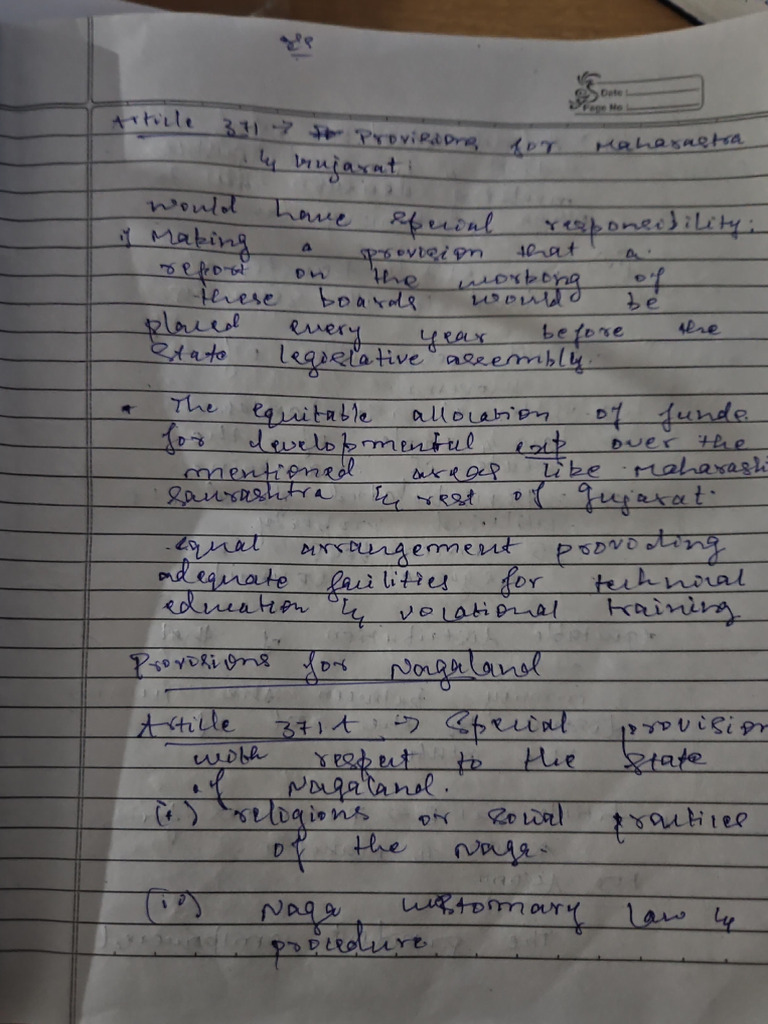 Date:
Page No:
Article 371 → Provisions for Maharastra
& Gujarat:
would have special responsibility:
i) Making a provision that a
report on the working of
these boards would be
placed every year before the
State legislative assembly.
* The equitable allocation of funds
for developmental exp over the
mentioned areas like Maharasht
Saurashtra & rest of Gujarat.
equal arrangement providing
adequate facilities for technical
education & vocational training
Provisions for Nagaland
Article 371A → Special provision
with respect to the State
of Nagaland.
(i) religions or social practices
of the Naga.
(ii) Naga customary law &
procedure